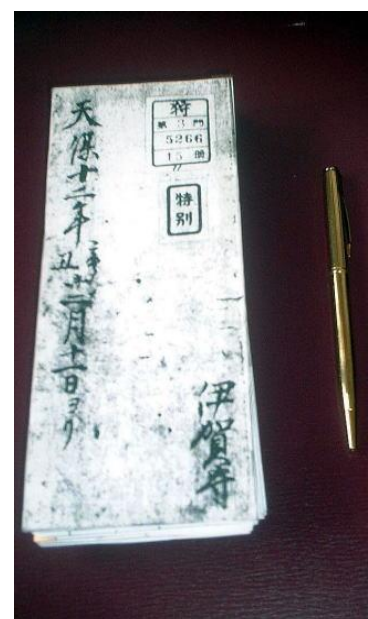 狩
第3門
5266
15冊
特別
伊賀守
天保十二年
丑十二月十一日ヨリ